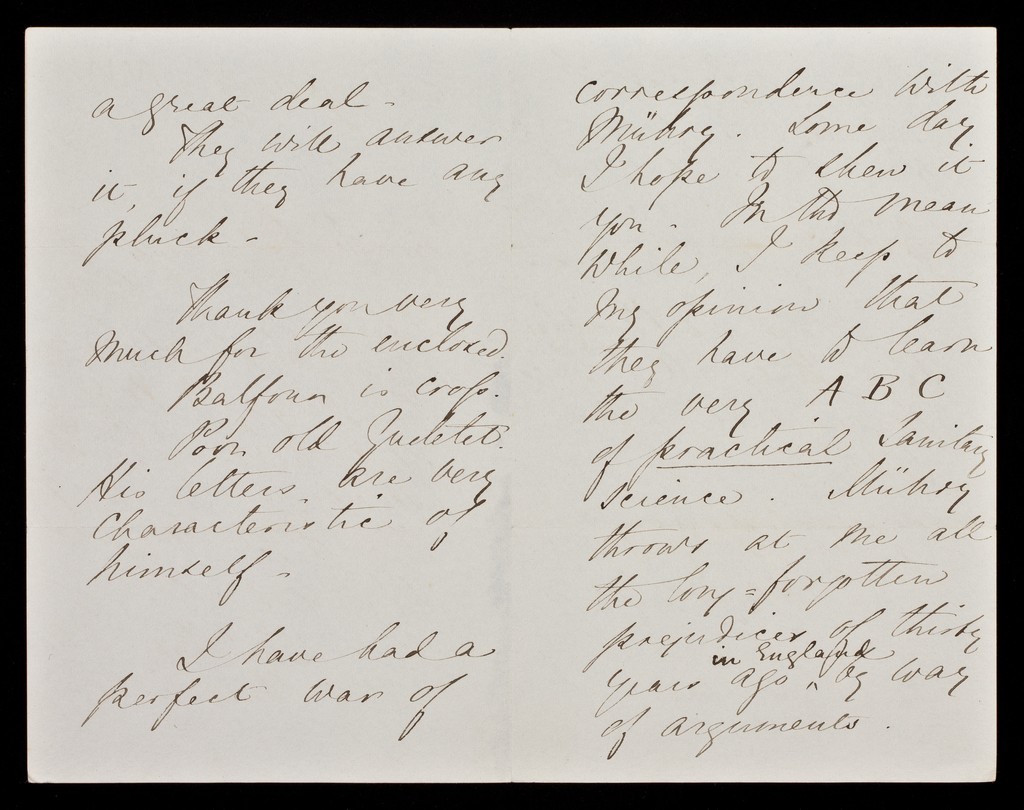 a great deal -
They will answer
it, if they have any
pluck -
Thank you very
much for the enclosed.
Balfour is cross.
Poor old Quetelet.
His letters are very
characteristic of
himself -
I have had a
perfect war of
correspondence with
Mühry. Some day
I hope to shew it
you. In the mean
while, I keep to
my opinion that
they have to learn
the very A B C
of practical Sanitary
science. Mühry
throws at me all
the long=forgotten
prejudices of thirty
in England
years ago ^ by way
of arguments.